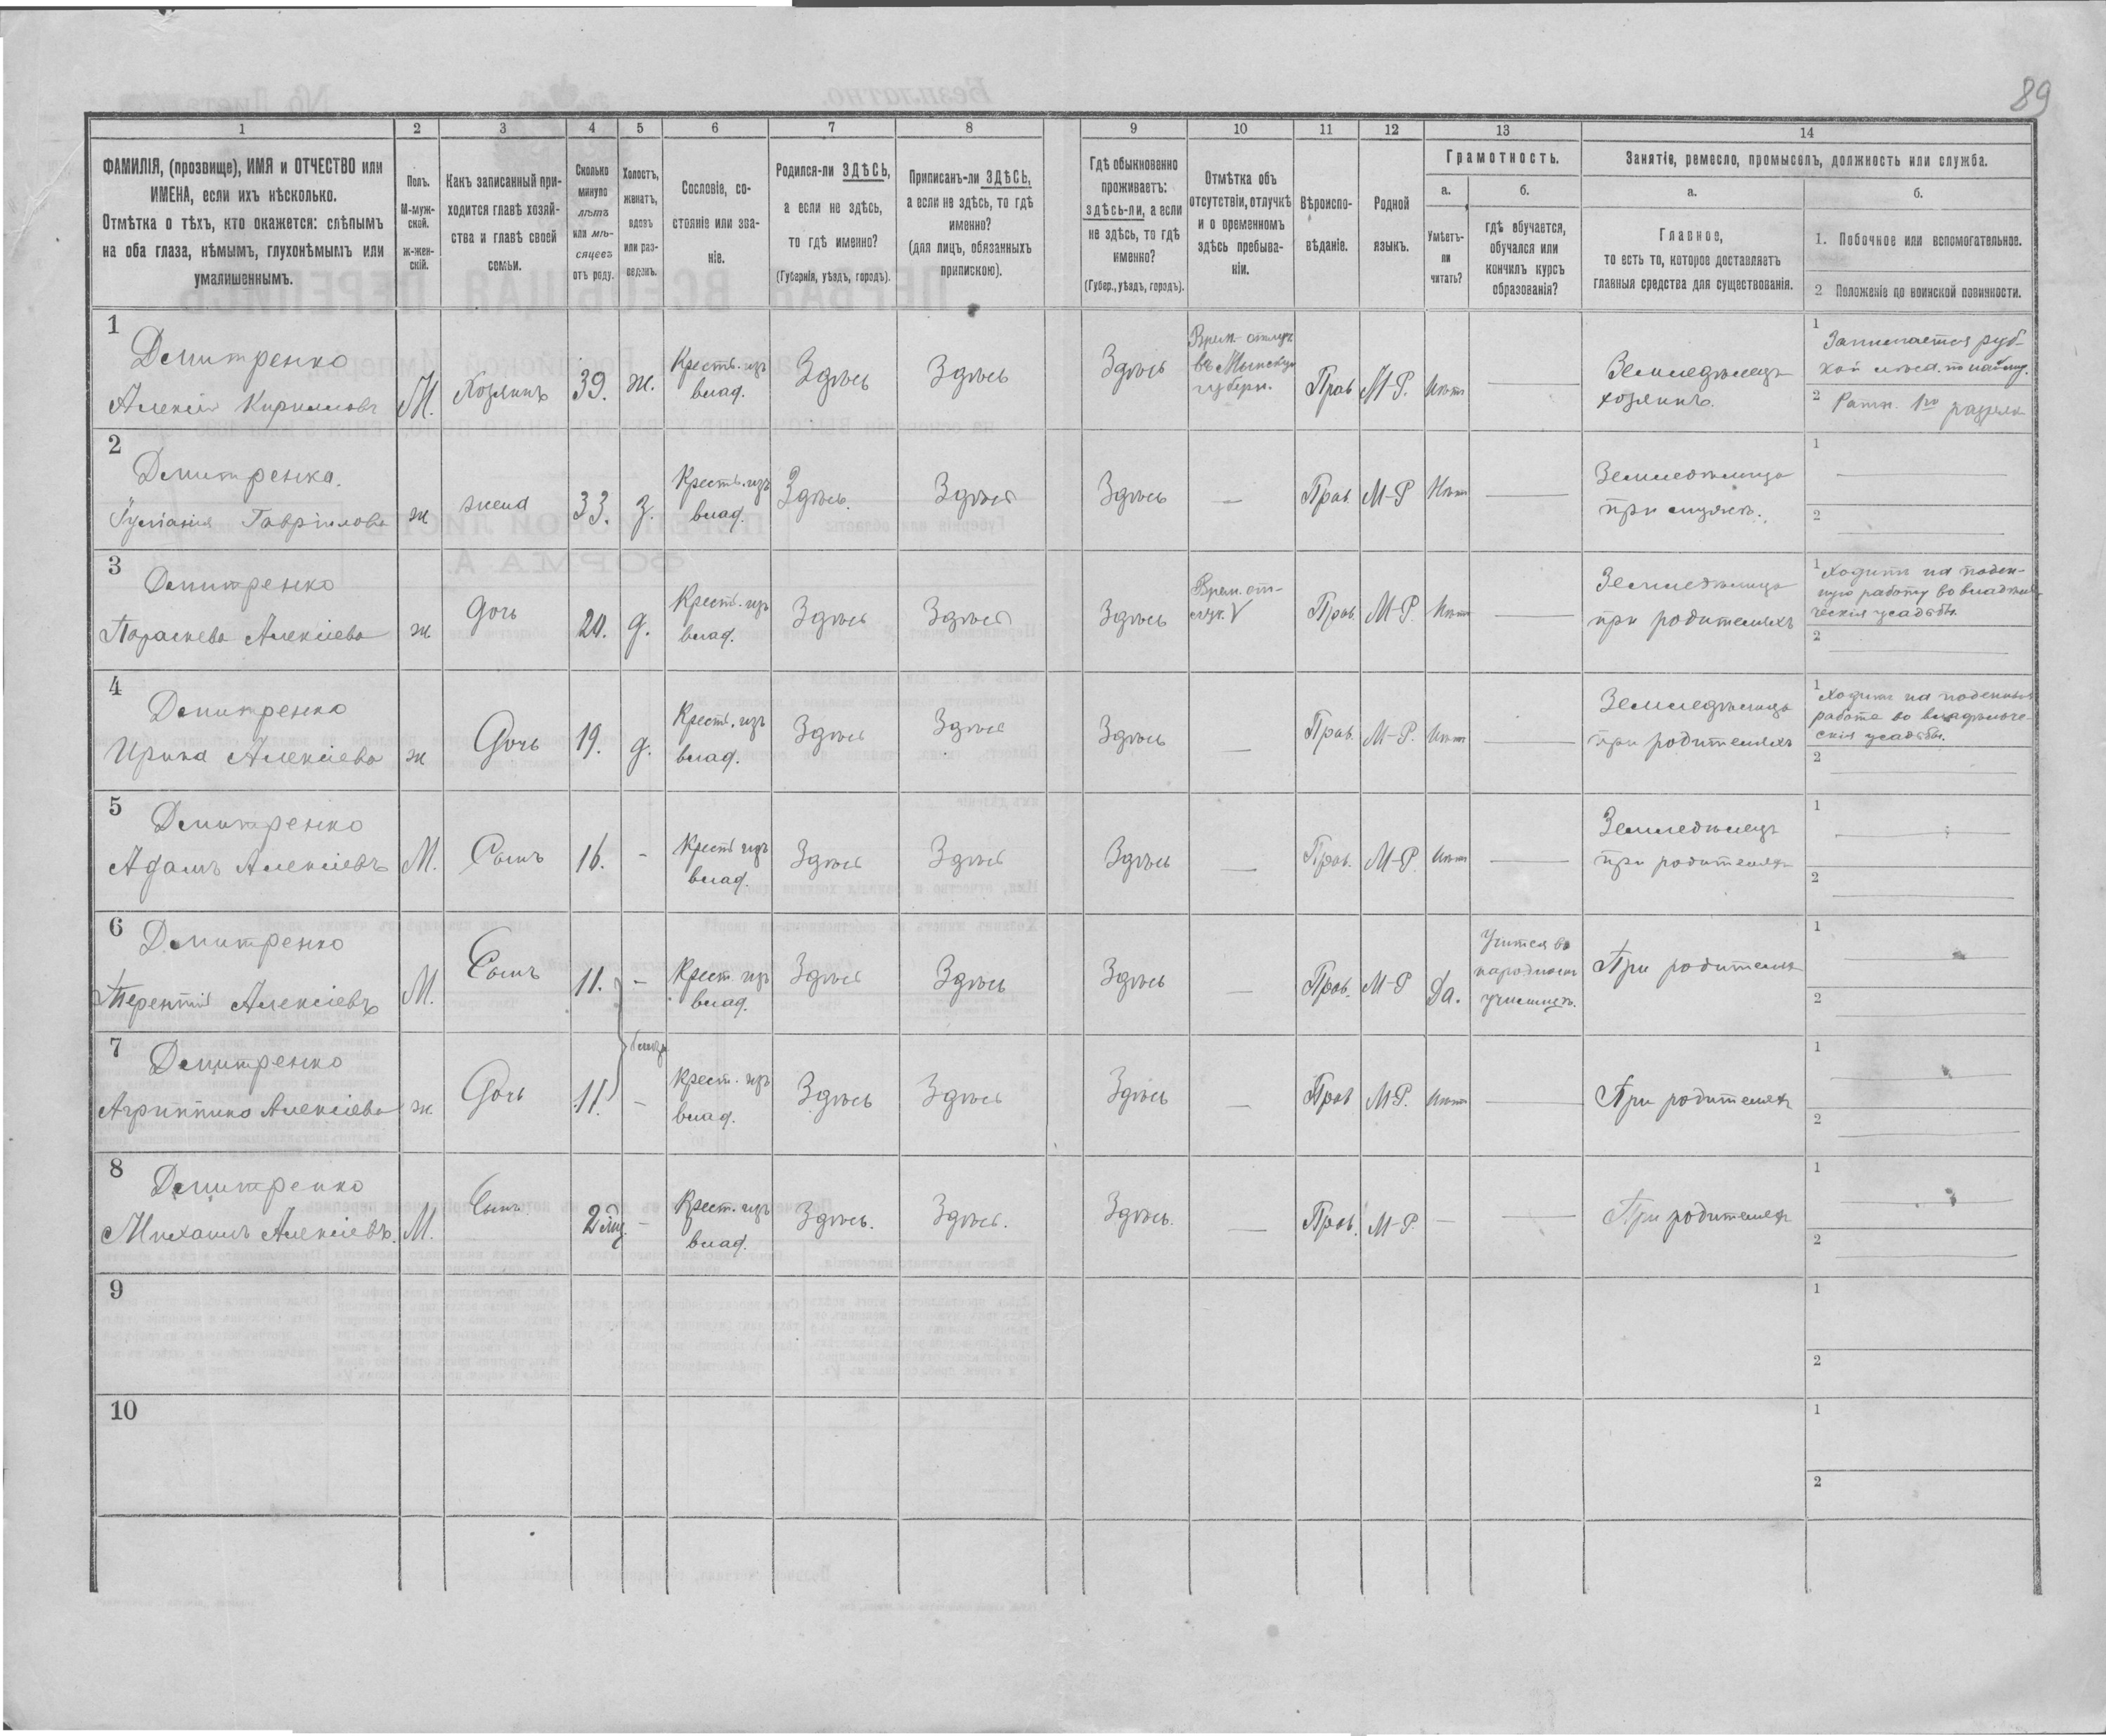 89
1 2 3 4 5 6 7 8 9 10 11 12 13 14
ФАМИЛІЯ, (прозвище), ИМЯ и ОТЧЕСТВО или
ИМЕНА, если ихъ нѣсколько.
Отмѣтка о тѣхъ, кто окажется: слѣпымъ
на оба глаза, нѣмымъ, глухонѣмымъ или
умалишеннымъ.
Полъ.
М-муж-
ской.
ж-жен-
скій.
Какъ записанный при-
ходится главѣ хозяй-
ства и главѣ своей
семьи.
Сколько
минуло
лѣтъ
или мѣ-
сяцевъ
отъ роду.
Холостъ,
женатъ,
вдовъ
или раз-
веденъ.
Сословіе, со-
стояніе или зва-
ніе.
Родился-ли ЗДѢСЬ,
а если не здѣсь,
то гдѣ именно?
(Губернія, уѣздъ, городъ).
Приписанъ-ли ЗДѢСЬ,
а если не здѣсь, то гдѣ
именно?
(для лицъ, обязанныхъ
припискою).
Гдѣ обыкновенно
проживаетъ:
здѣсь-ли, а если
не здѣсь, то гдѣ
именно?
(Губер., уѣздъ, городъ).
Отмѣтка объ
отсутствіи, отлучкѣ
и о временномъ
здѣсь пребыва-
ніи.
Вѣроиспо-
вѣданіе.
Родной
языкъ.
Грамотность.
а.
Умѣетъ-
ли
читать?
б.
гдѣ обучается,
обучался или
кончилъ курсъ
образованія?
Занятіе, ремесло, промыселъ, должность или служба.
а.
Главное,
то есть то, которое доставляетъ
главныя средства для существованія.
б.
1. Побочное или вспомогательное.
2 Положеніе по воинской повинности.
1
Дмитренко
Алексій Кириловъ
М.
Хозяинъ
39.
ж.
Крестъ. изъ
влад.
Здѣсь
Здѣсь
Здѣсь
Врем. отлуч.
въ Минскую
губерн.
Прав
М-Р.
Нѣтъ
Земледѣлецъ
хозяинъ.
1
Занимается руб-
кой
2 Ратн. 1го разряда
2
Дмитренко.
Гавріилова
ж
жена
33.
З.
Крестъ. изъ
влад.
Здѣсь.
Здѣсь
Здѣсь
—
Прав.
М-Р
Нѣтъ
Земледѣлица
при мужѣ.
1
2
3
Дмитренко
Параскева Алексіева
ж
дочь
20.
д.
Крест. изъ
влад.
Здѣсь
Здѣсь
Здѣсь
Врем. от-
луч. V
Прав.
М-Р.
Нѣтъ
Земледѣлица
при родителяхъ
1 Ходитъ на поден-
ную работу во владѣль-
ческія усадьбы.
2
4
Дмитренко
Ирина Алексіева
ж
Дочь
19.
д.
Крест. изъ
влад.
Здѣсь
Здѣсь
Здѣсь
—
Прав.
М-Р.
Нѣтъ
Земледѣлица
при родителяхъ
1 Ходитъ на поденныя
работы во владѣльче-
скія усадьбы.
2
5
Дмитренко
Адамъ Алексіевъ
М.
Сынъ
16.
-
Крест изъ
влад.
Здѣсь
Здѣсь
Здѣсь
—
Прав.
М-Р
Нѣтъ
Земледѣлецъ
при родителях
1
2
6
Дмитренко
Терентій Алексіевъ
М.
Сынъ
11.
-
Крест изъ
влад.
Здѣсь
Здѣсь
Здѣсь
—
Прав.
М-Р
Да.
Учится въ
народномъ
училищѣ.
При родителях
1
2
близн.
7
Дмитренко
Агриппина Алексіева
ж.
Дочь
11.
-
Крест. изъ
влад.
Здѣсь
Здѣсь
Здѣсь
—
Прав
М-Р.
Нѣтъ
При родителях
1
2
8
Дмитренко
Михаилъ Алексіевъ.
М.
Сынъ
-
Крест. изъ
влад.
Здѣсь.
Здѣсь.
Здѣсь.
—
Прав.
М-Р.
—
При родителях
1
2
9
1
2
10
1
2